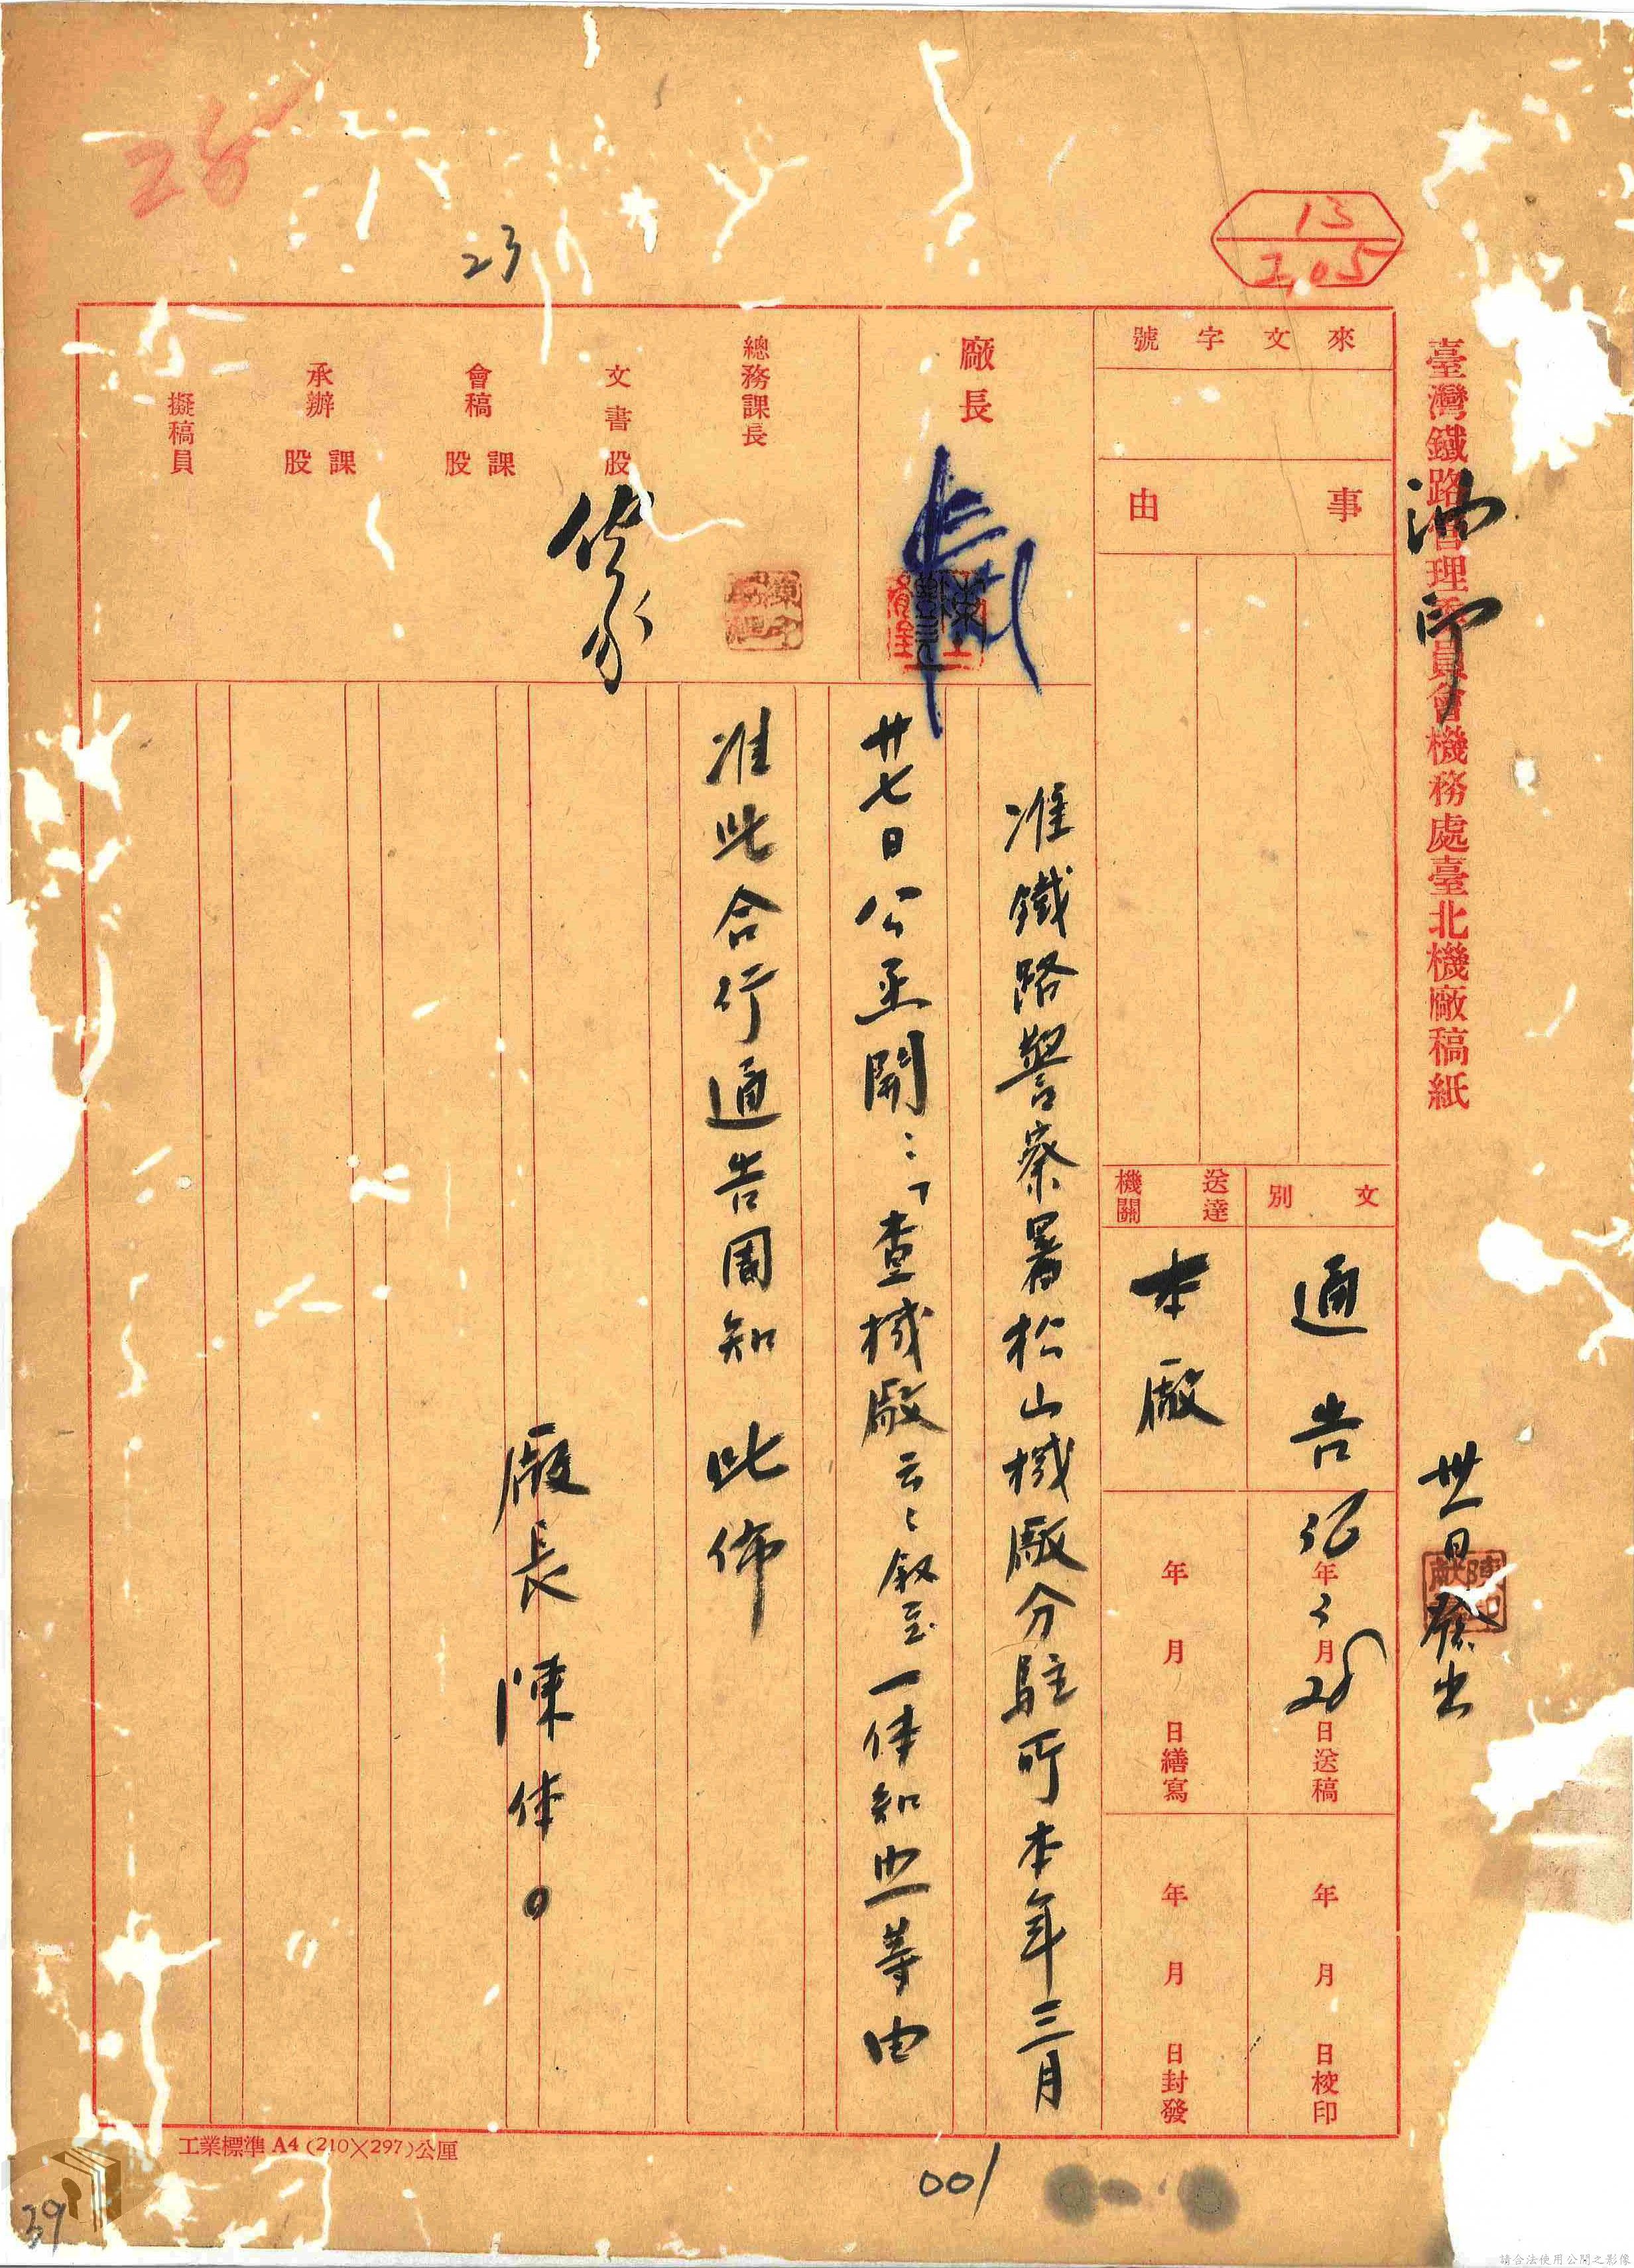 臺灣鐵路管理委員會機務處臺北機廠稿紙
油印
卅一日發出
13
2,05
來文字號
事由
文別
通告
送達機關
本廠
36年3月28日送稿
年月日繕寫
年月日校印
年月日封發
廠長
總務課長
文書股
會稿課股
承辦課股
擬稿員
28
23
准鐵路警察署松山機廠分駐所本年三月
廿七日公函開：「查機廠云云敘至一体知照等由
准此合行通告周知 此佈
廠長 陳 体。
工業標準 A4 (210×297)公厘
001
39
請合法使用公開之影像